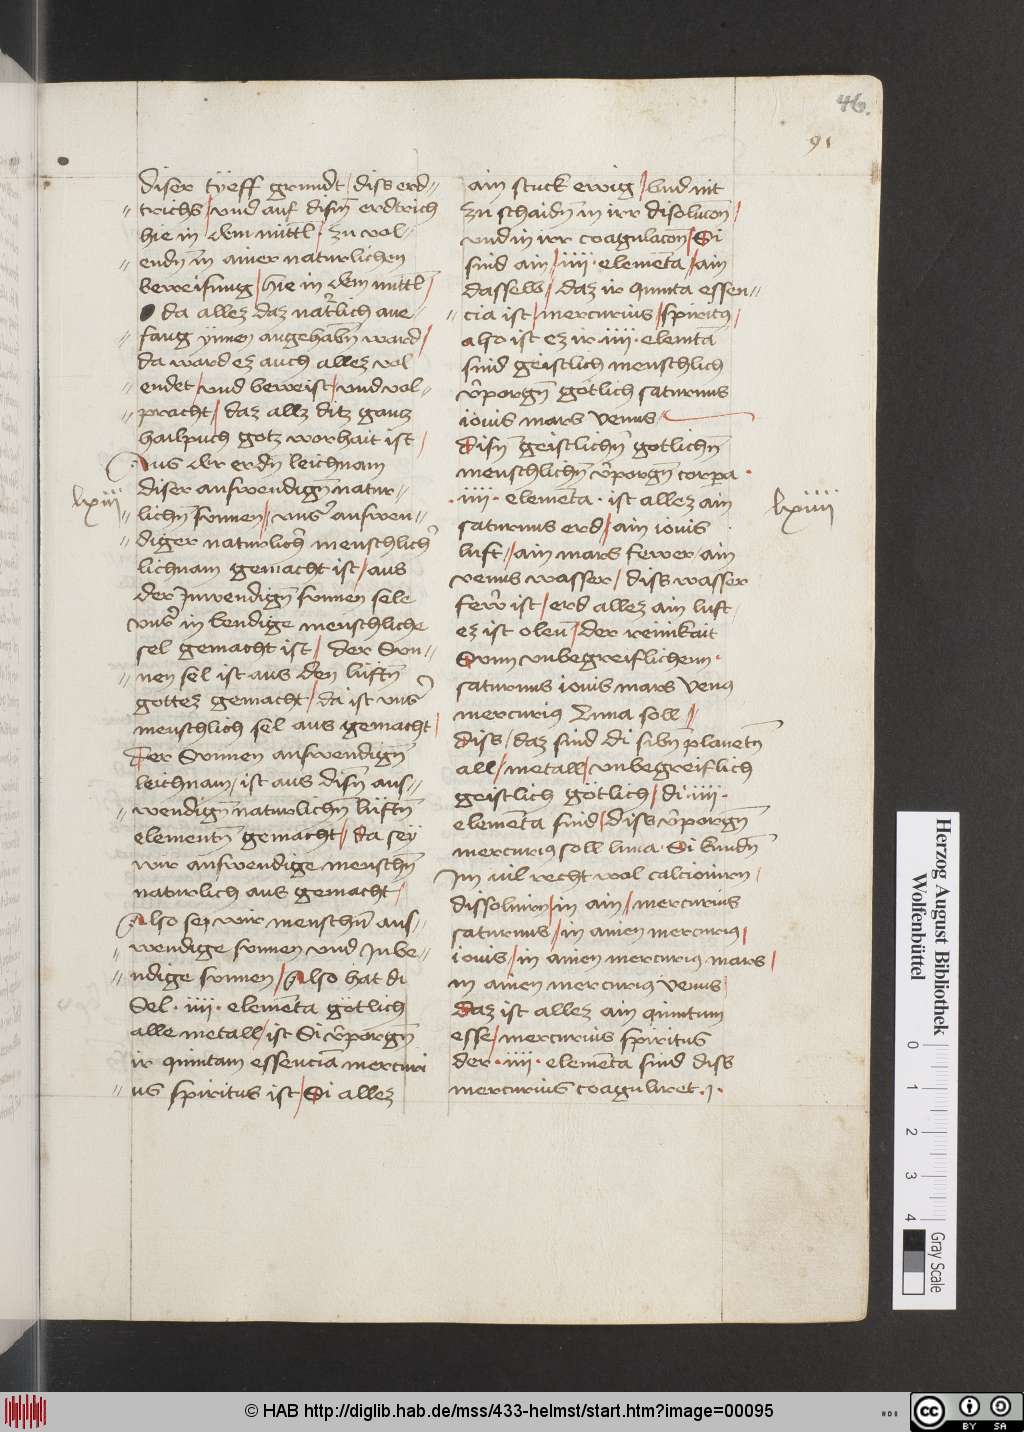 46.
91
diser tÿeff grundt / diss erd=
trichs / vnd auf dism̄ erdtrich
hie in dem mittl · zu vol=
endn̄ in ainer naturlichen
beweisung / hie in dem mittl /
da allez daz natᵉlich ane=
fang ynnen angehabn̄ ward /
da ward ez auch allez vol
endet / vnd beweist / vnd vol=
pracht / daz allz ditz gantz
hailpuch gotz worhait ist /
Aus der erdn̄ leichnam
lxiij
diser auswendign̄ natur=
lichn̄ sunnen / vnsᵉ auswen=
diger naturlichᵉ menschlichᵉ
lichnam gemacht ist / aus
der Inwendign̄ sunnen sele
vnsᵉ in bendige menschliche
sel gemacht ist / der Sun=
nen sel ist aus den lüftn̄
gottez gemacht / da ist vnsᵉ
menschlich sel aus gemacht /
Der Sunnen auswendign̄
leichnam / ist aus disn̄ aus=
wendign̄ naturlichn̄ lüftn̄
elementn̄ gemacht / da seÿ
wir auswendige menschn̄
naturlich aus gemacht /
Also sey wir menschn̄ aus=
wendige sunnen vnd Inbe=
ndige sunnen / Also hat di
Sel · iiii · elemēta götlich
alle metall / ist Si vᵉporgn̄
ir quintam essenciā mercuri
us spiritus ist / Si allez
ain stuck ewig / vnd nit
zu schaidn̄ in irr disolucōn /
vnd in irr coagulacōn / Si
sind ain / iiii · elemēta / ain
dasselb / daz ir quinta essen=
cia ist / mercurius / spiritus /
also ist ez ir iiii · elemtā
sind geistlich menschlich
vᵉporgn̄ götlich saturnus
iouis mars venus
disn̄ geistlichn̄ gotlichn̄
menschlichn̄ vᵉporgn̄ corpa ·
· iiii · elemēta · ist allez ain
lxiiii
saturnus erd / ain iouis
luft / ain mars fewer ain
venus wasser / diss wasser
fewr ist / erd allez ain luft
ez ist oleū / der reinikait
Sunn vnbegreiflichenn ·
saturnus iouis mars venus
mercurius Luna soll /
diss / daz sind di sibn̄ planetn̄
all / metall / vnbegreiflich
geistlich götlich / di iiii ·
elemēta sind / diss vᵉporgn̄
mercurius soll luna · Si kundn̄
Im uil recht wol calcionirn /
dissoluirn / in ain / mercurius
saturnus / in ainen mercurius /
iouis / in ainen mercurius mars /
in ainen mercurius venus /
daz ist allez ain quintum
esse / mercurius spiritus
der · iiii · elemēta sind diss
mercurius coaguliret ·
Herzog August Bibliothek
Wolfenbüttel
0 1 2 3 4
Gray Scale
© HAB http://diglib.hab.de/mss/433-helmst/start.htm?image=00095
cc BY SA